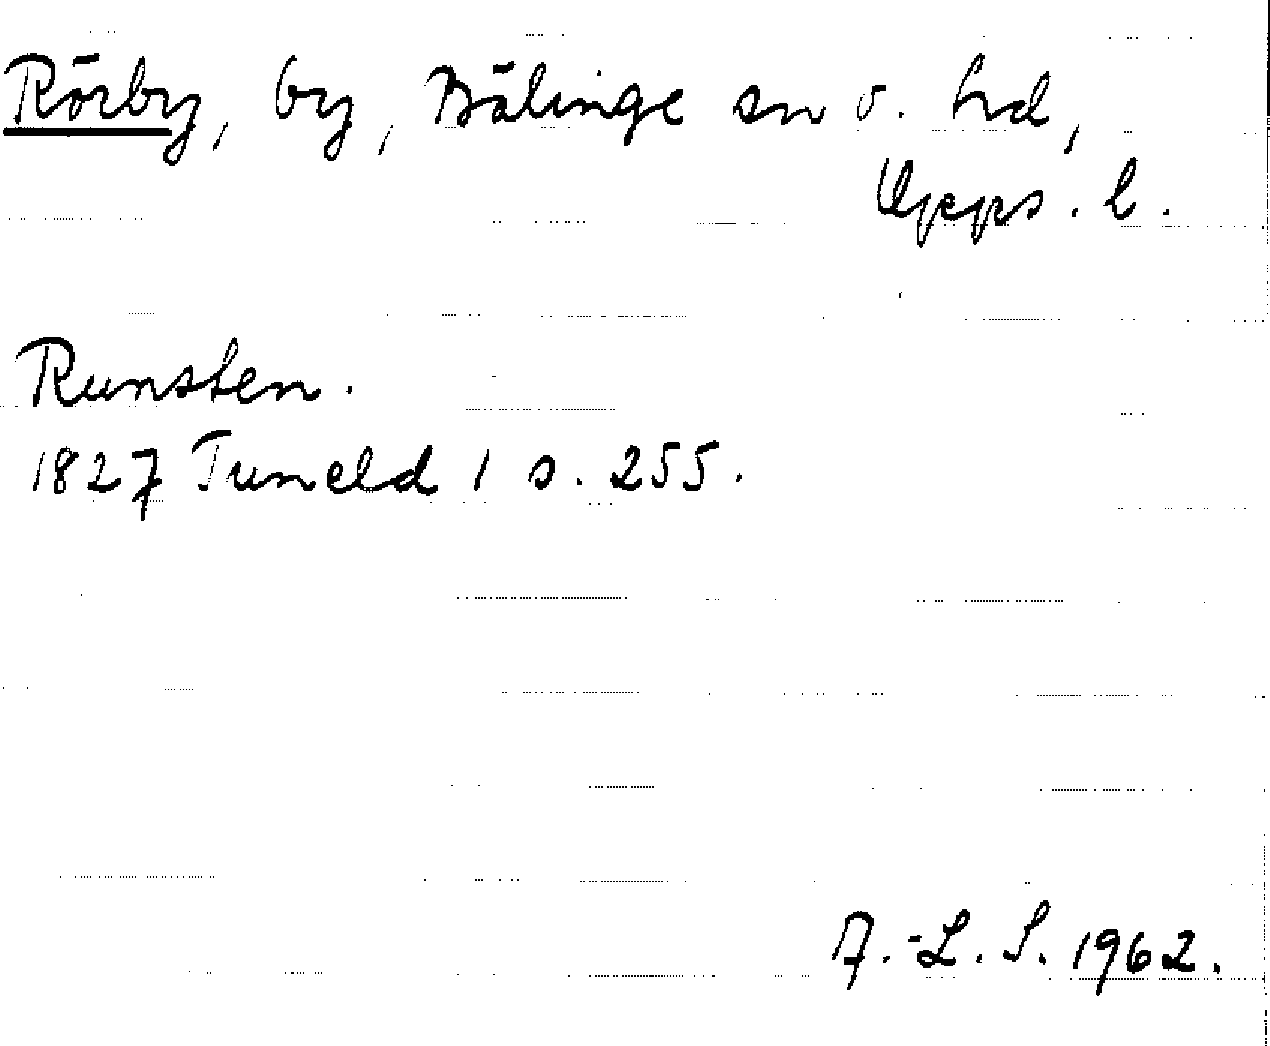 Rörby, by, Bälinge sn o. hd,
Upps. l.
Runsten.
1827 Tuneld 1 s. 255.
A.-L. S. 1962.